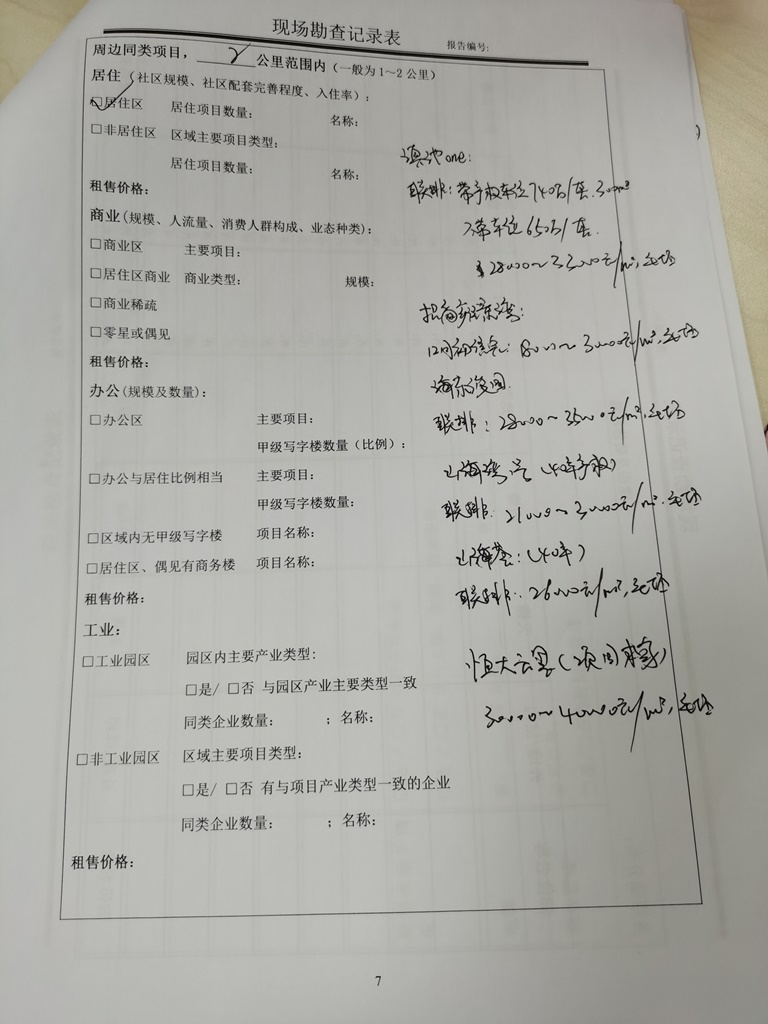 现场勘查记录表
报告编号:
周边同类项目， 2 公里范围内（一般为1～2公里）
居住（社区规模、社区配套完善程度、入住率）：
☑居住区 居住项目数量： 名称：
□非居住区 区域主要项目类型：
居住项目数量： 名称：
滇池one:
租售价格：
联排：带产权车位740万/套.300m²
商业(规模、人流量、消费人群构成、业态种类)：
不带车位650万/套.
□商业区 主要项目：
28000～33000元/m²,毛坯
□居住区商业 商业类型： 规模：
□商业稀疏
□零星或偶见
租售价格：
办公(规模及数量)：
联排：28000～35000元/m²,毛坯
□办公区 主要项目：
甲级写字楼数量（比例）：
(40年产权)
□办公与居住比例相当 主要项目：
联排：21000～30000元/m².毛坯
甲级写字楼数量：
□区域内无甲级写字楼 项目名称：
(40年)
□居住区、偶见有商务楼 项目名称：
联排：26000元/m²,毛坯
租售价格：
工业：
□工业园区 园区内主要产业类型:
恒大云
□是/ □否 与园区产业主要类型一致
30000～40000元/m²,毛坯
同类企业数量： ；名称：
□非工业园区 区域主要项目类型：
□是/ □否 有与项目产业类型一致的企业
同类企业数量： ；名称：
租售价格：
7